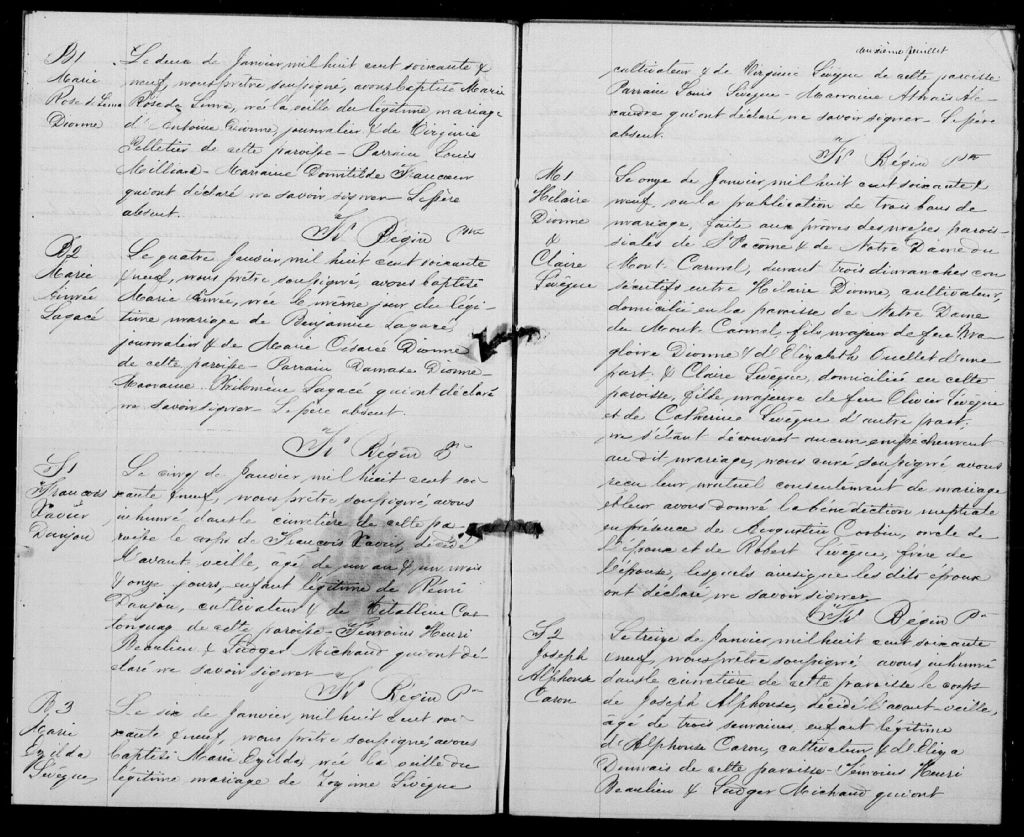 B1
Marie
Rose de Lima
Dionne
Le deux de Janvier, mil huit cent soixante &
neuf, nous prêtre soussigné, avons baptisé Marie
Rose de Lima, née la veille du légitime mariage
d'Antoine Dionne, journalier & de Virginie
Pelletier de cette paroisse – Parrain Louis
Milliard – Marraine Domitilde Francoeur
qui ont déclaré ne savoir signer – Le père
absent.
Bégin Ptre
B2
Marie
Aimée
Lagacé
Le quatre Janvier, mil huit cent soixante
& neuf, nous prêtre soussigné, avons baptisé
Marie Aimée, née le même jour du légi-
time mariage de Benjamin Lagacé,
journalier & de Marie Césarée Dionne
de cette paroisse – Parrain Damase Dionne –
Marraine Philomène Lagacé qui ont déclaré
ne savoir signer – Le père absent.
Bégin P
S1
François
Xavier
Danjou
Le cinq de Janvier, mil huit cent soi-
xante & neuf, nous prêtre soussigné, avons
inhumé dans le cimetière de cette pa-
roisse le corps de François Xavier, décédé
l'avant veille, âgé de un an & un mois
& onze jours, enfant légitime de Rémi
Danjou, cultivateur & de
de cette paroisse – Témoins Henri
Beaulieu & Ludger Michaud qui ont dé-
claré ne savoir signer –
Bégin Ptre
B3
Marie
Exilda
Lévêque
Le six de Janvier, mil huit cent soi-
xante & neuf, nous prêtre soussigné, avons
baptisé Marie Exilda, née la veille du
légitime mariage de Zozime Lévêque
deuxième feuillet
cultivateur & de Virginie Lévêque de cette paroisse
Parrain Louis Lévêque – Marraine Athaïs Ale-
xandre qui ont déclaré ne savoir signer – Le père
absent.
Bégin Ptre
M1
Hilaire
Dionne
&
Claire
Lévêque
Le onze de Janvier, mil huit cent soixante &
neuf, vu la publication de trois bans de
mariage, faite aux prônes des messes parois-
siales de St Pacome & de Notre Dame du
Mont Carmel, durant trois dimanches con
sécutifs entre Hilaire Dionne, cultivateur,
domicilié en la paroisse de Notre Dame
du Mont Carmel, fils majeur de feu Ma
gloire Dionne & d'Elizabeth Ouellet d'une
part, & Claire Lévêque, domiciliée en cette
paroisse, fille majeure de feu Olivier Lévêque
et de Catherine Lévêque d'autre part,
ne s'étant découvert aucun empêchement
au dit mariage, nous curé soussigné avons
reçu leur mutuel consentement de mariage
et leur avons donné la bénédiction nuptiale
en présence de Augustin Corbin, oncle de
l'époux et de Robert Lévêque, frère de
l'épouse, lesquels ainsi que les dits époux
ont déclaré ne savoir signer
Bégin Ptre
S2
Joseph
Alphonse
Caron
Le treize de Janvier, mil huit cent soixante
& neuf, nous prêtre soussigné, avons inhumé
dans le cimetière de cette paroisse le corps
de Joseph Alphonse, décédé l'avant veille,
âgé de trois semaines, enfant légitime
d'Alphonse Caron, cultivateur & d'Eliza
Dumais de cette paroisse – Témoins Henri
Beaulieu & Ludger Michaud qui ont